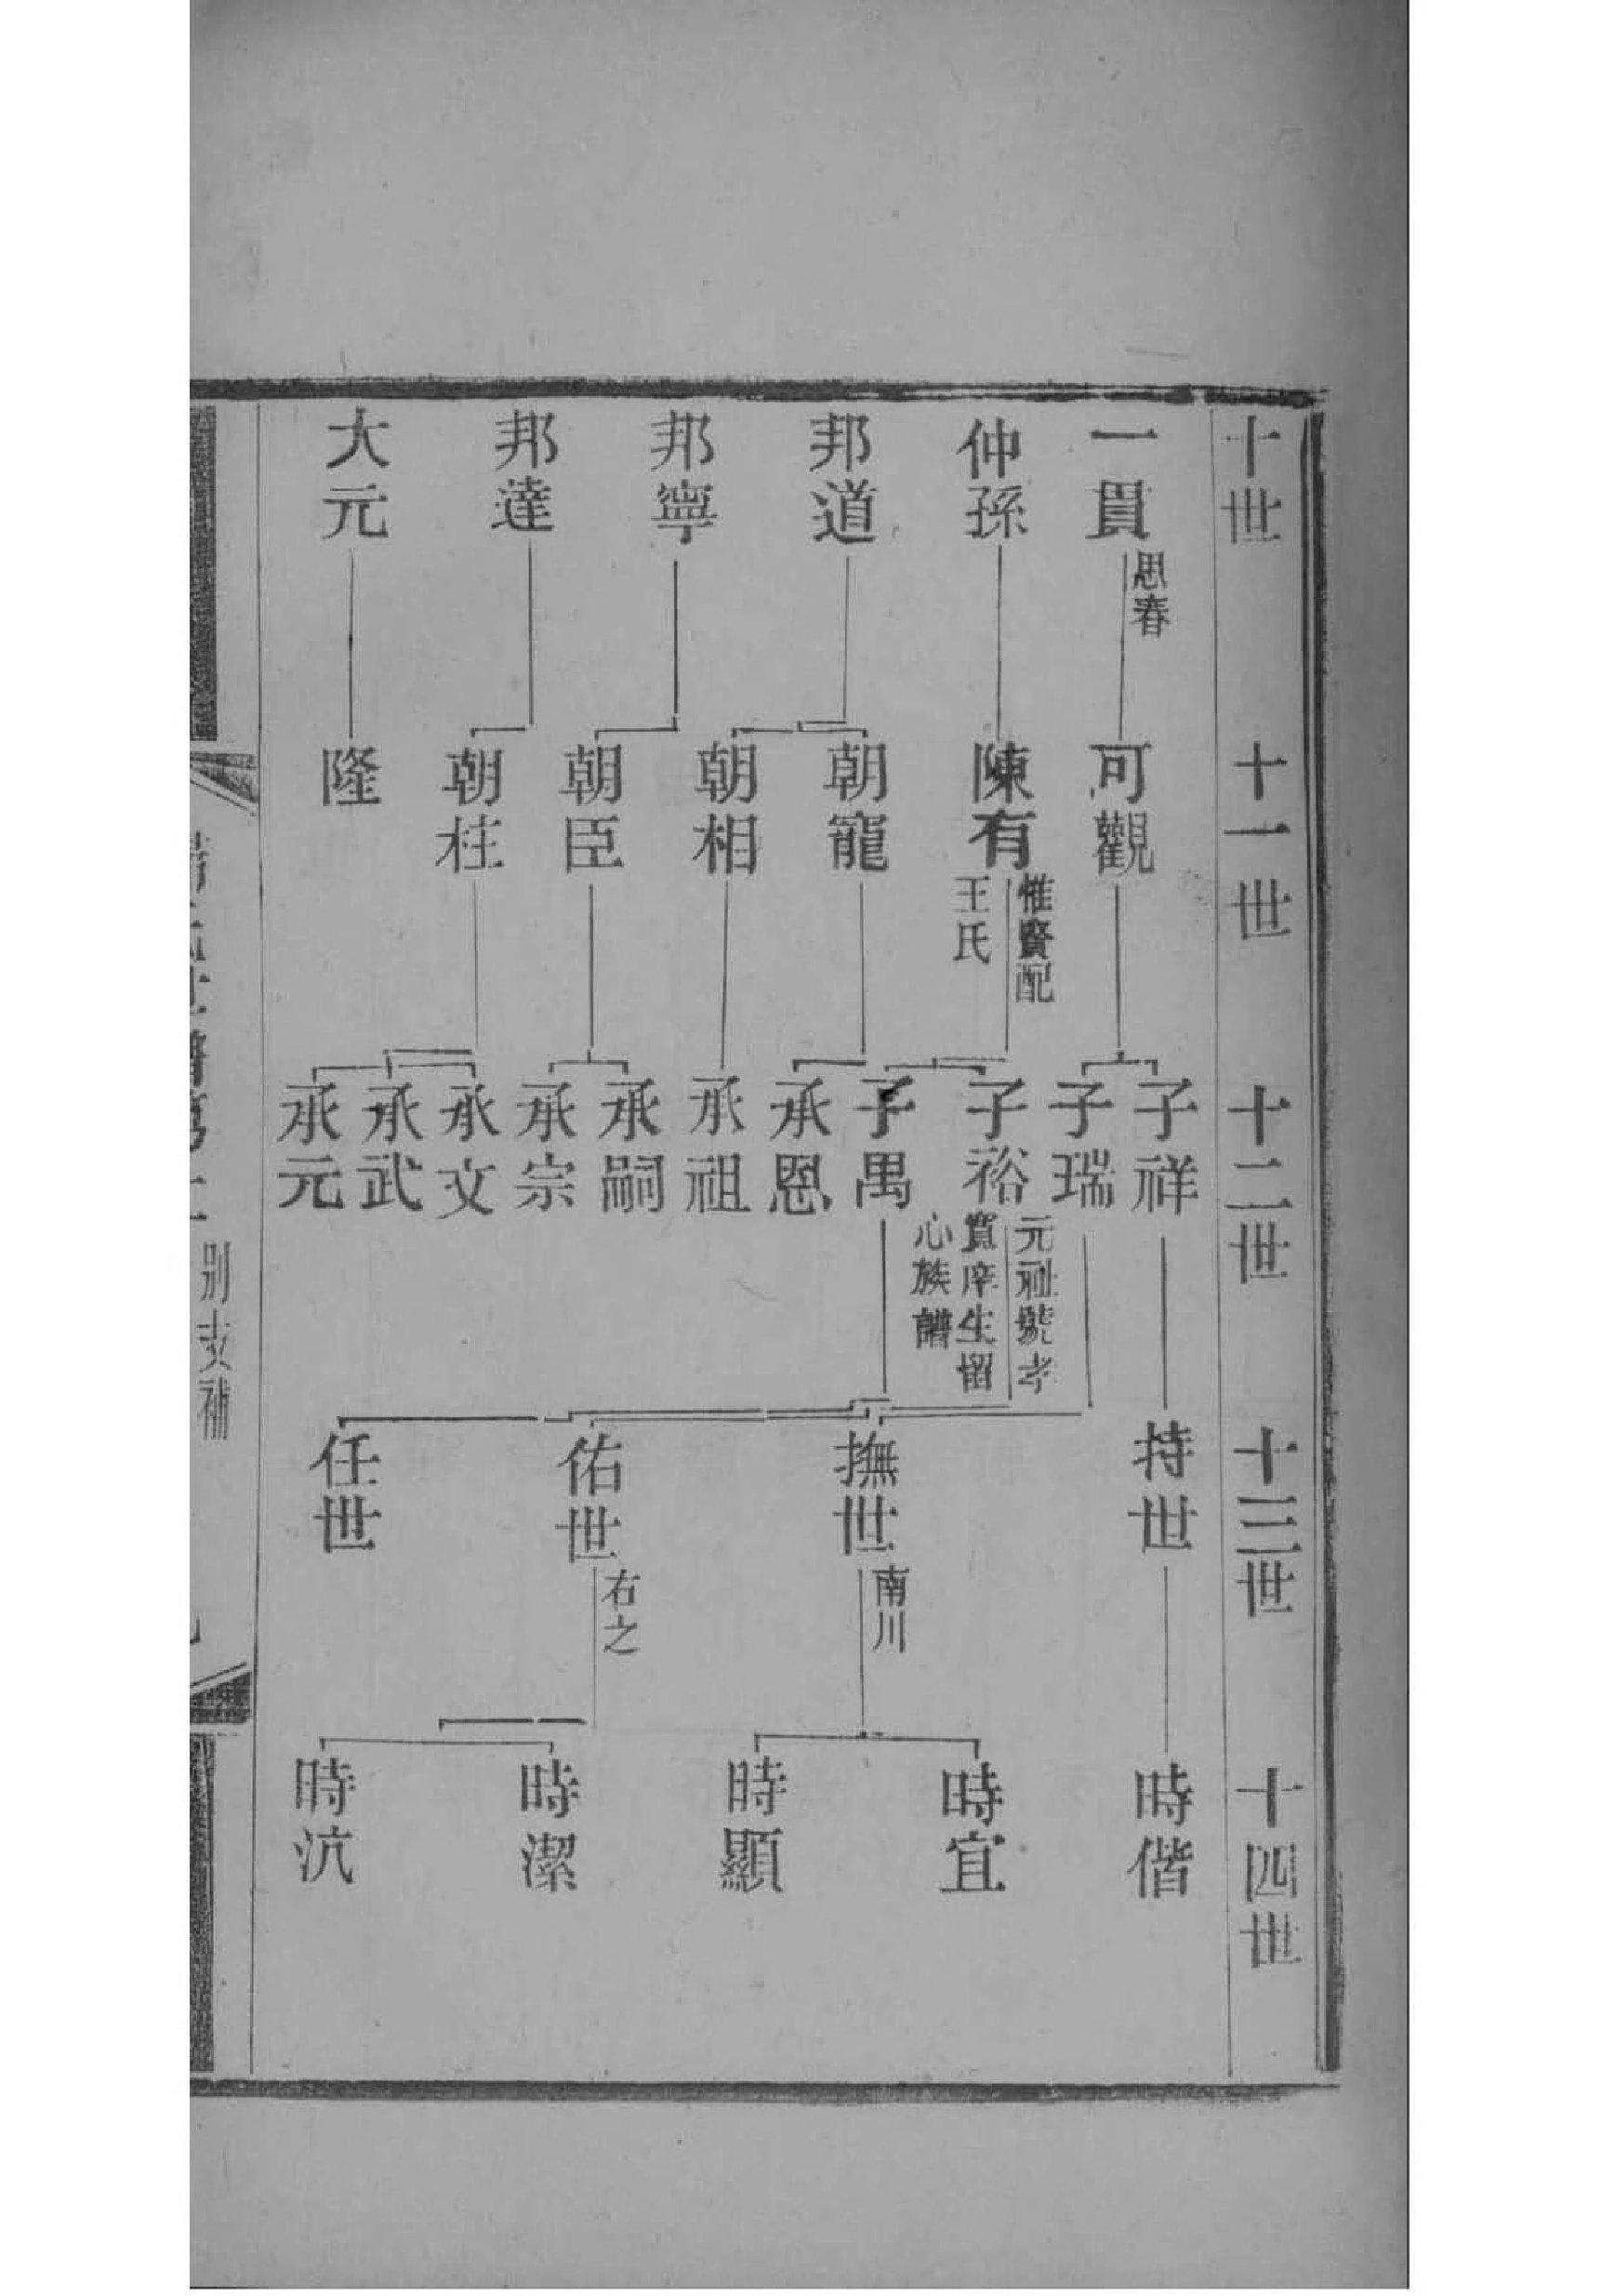 十世
一貫
思春
仲孫
邦道
邦寧
邦達
大元
十一世
可觀
陳有
惟賢配
王氏
朝寵
朝相
朝臣
朝柱
隆
十二世
子祥
子瑞
子裕
元祉號孝
賓庠生留
心族譜
子禺
承恩
承祖
承嗣
承宗
承文
承武
承元
十三世
持世
撫世
南川
佑世
右之
任世
十四世
時偕
時宜
時顯
時潔
時沆
別支補